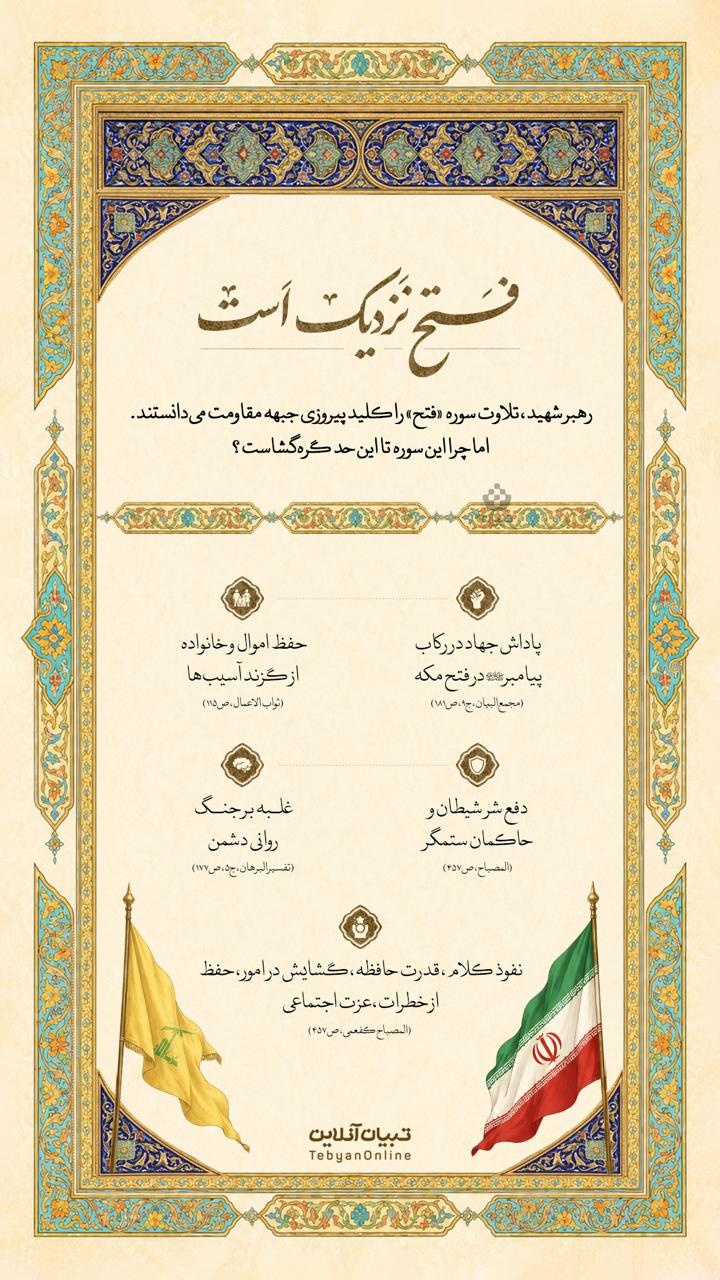 فَتح نَزدیک اَست
رهبر شهید، تلاوت سوره «فتح» را کلید پیروزی جبهه مقاومت می‌دانستند.
اما چرا این سوره تا این حد گره‌گشاست؟
پاداش جهاد در رکاب
پیامبرﷺ در فتح مکه
(مجمع البیان، ج۹، ص۱۸۱)
حفظ اموال و خانواده
از گزند آسیب‌ها
(ثواب الاعمال، ص۱۱۵)
دفع شر شیطان و
حاکمان ستمگر
(المصباح، ص۴۵۷)
غلبه بر جنگ
روانی دشمن
(تفسیر البرهان، ج۵، ص۱۷۷)
نفوذ کلام، قدرت حافظه، گشایش در امور، حفظ
از خطرات، عزت اجتماعی
(المصباح کفعمی، ص۴۵۷)
تبیان آنلاین
TebyanOnline